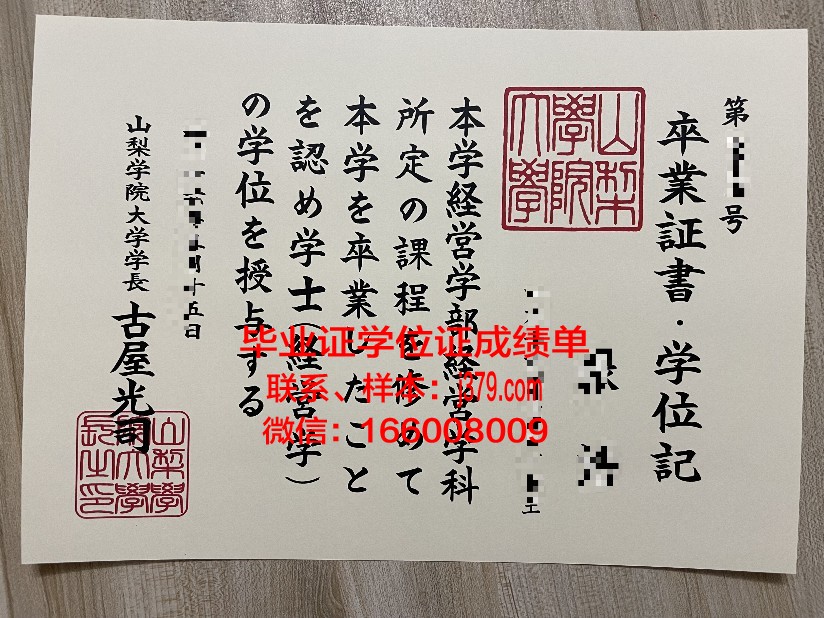 第 号
卒業証書・学位記
山梨
學院
大學
本学経営学部経営学科
所定の課程を修めて
本学を卒業したこと
を認め学士（経営学）
の学位を授与する
月十五日
山梨学院大学学長 古屋光司
山梨學
院大學
長之印
毕业证学位证成绩单
联系、样本：j379.com
微信：166008009